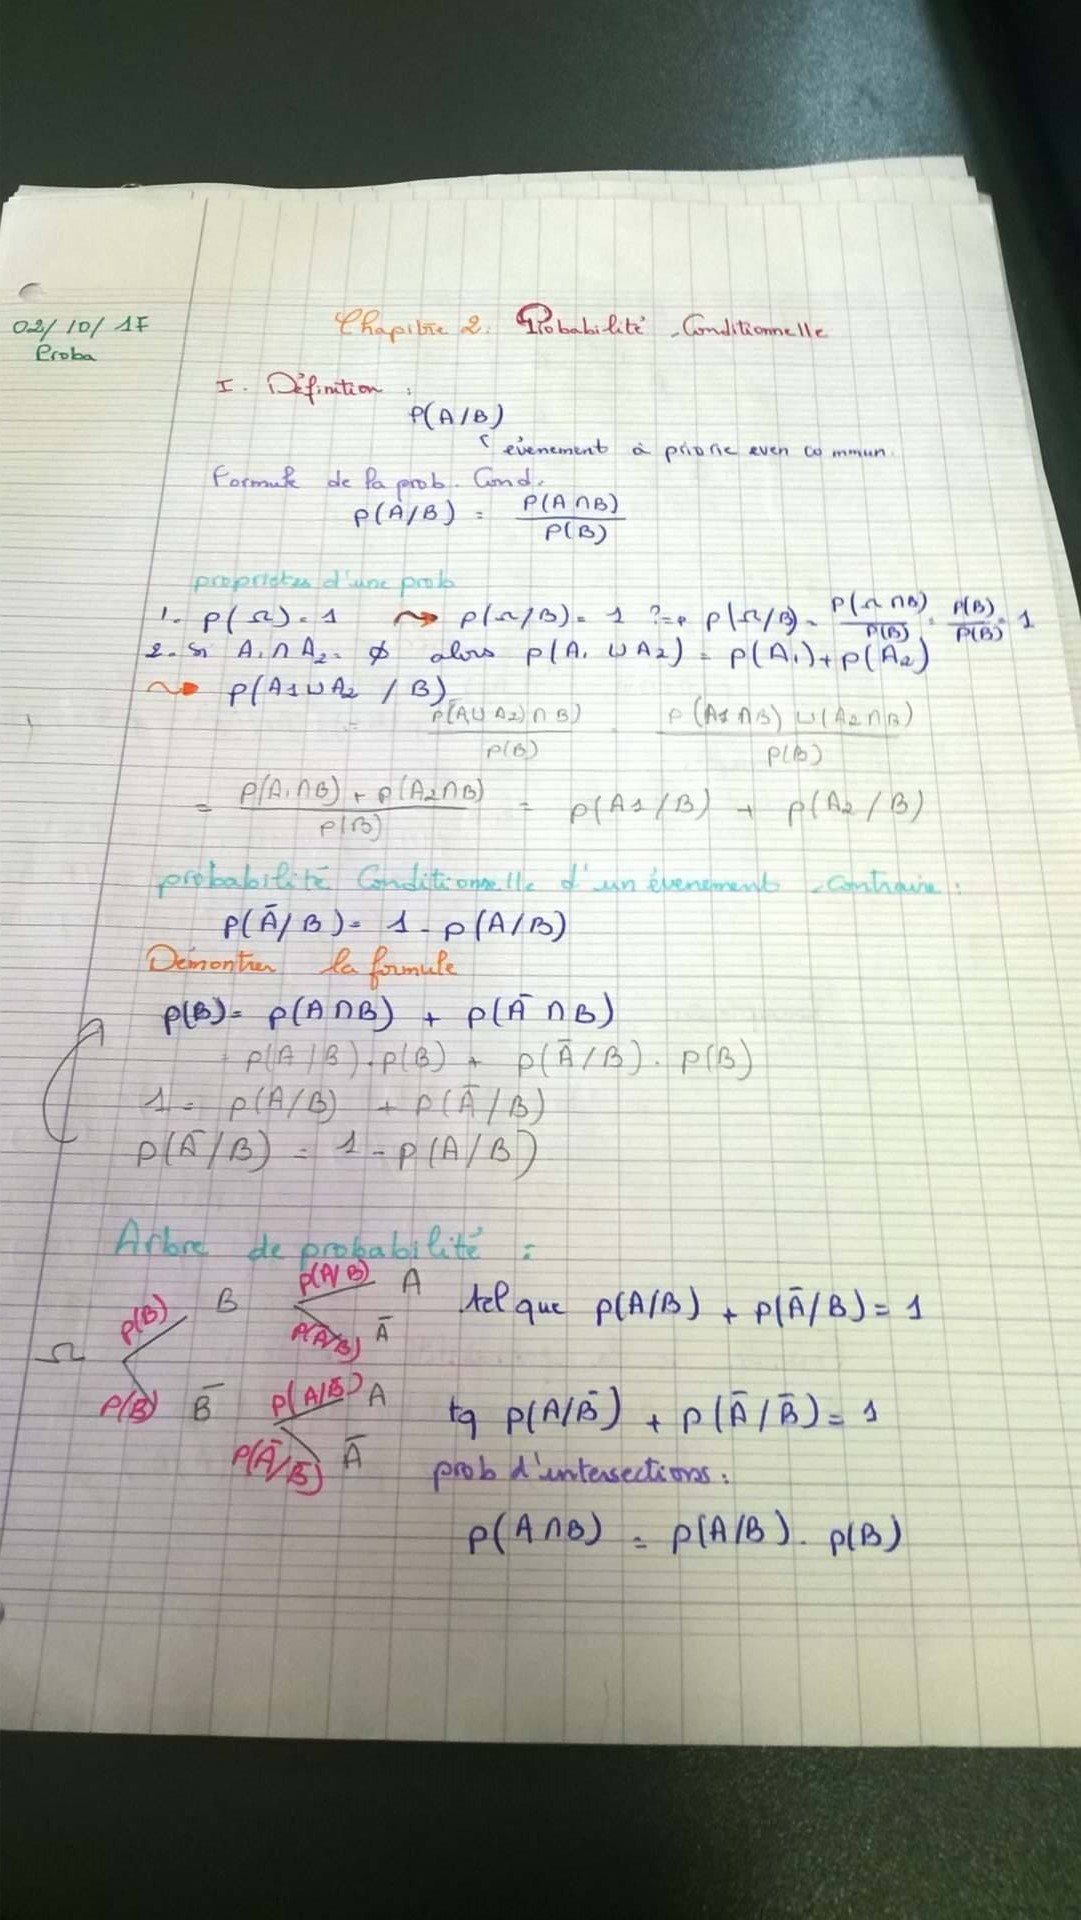 02/10/17
Proba
Chapitre 2. Probabilité Conditionnelle
I. Définition :
P(A/B)
évènement à priorie even commun.
Formule de la prob. Cond.
P(A/B) = P(A∩B) / P(B)
proprietes d'une prob
1. p(Ω) = 1 ⇝ p(Ω/B) = 1 ? → p(Ω/B) = P(Ω∩B) / P(B) = P(B) / P(B) = 1
2. si A₁∩A₂ = ∅ alors p(A₁∪A₂) = p(A₁)+p(A₂)
⇝ p(A1∪A2 / B)
= p(A∪A2)∩B) / p(B) p(A1∩B)∪(A2∩B) / p(B)
= p(A₁∩B) + p(A2∩B) / p(B) = p(A1/B) + p(A2/B)
probabilité Conditionnelle d'un évenement contraire :
p(Ā/B) = 1 - p(A/B)
Démontrer la formule
p(B) = p(A∩B) + p(Ā∩B)
p(A/B).p(B) + p(Ā/B). p(B)
1 = p(A/B) + p(Ā/B)
p(Ā/B) = 1 - p(A/B)
Arbre de probabilité :
p(B) B p(A/B) A tel que p(A/B) + p(Ā/B) = 1
Ω Ā
B̄ p(A/B̄) A tq p(A/B̄) + p(Ā/B̄) = 1
p(Ā/B̄) Ā prob d'intersections :
p(A∩B) = p(A/B). p(B)